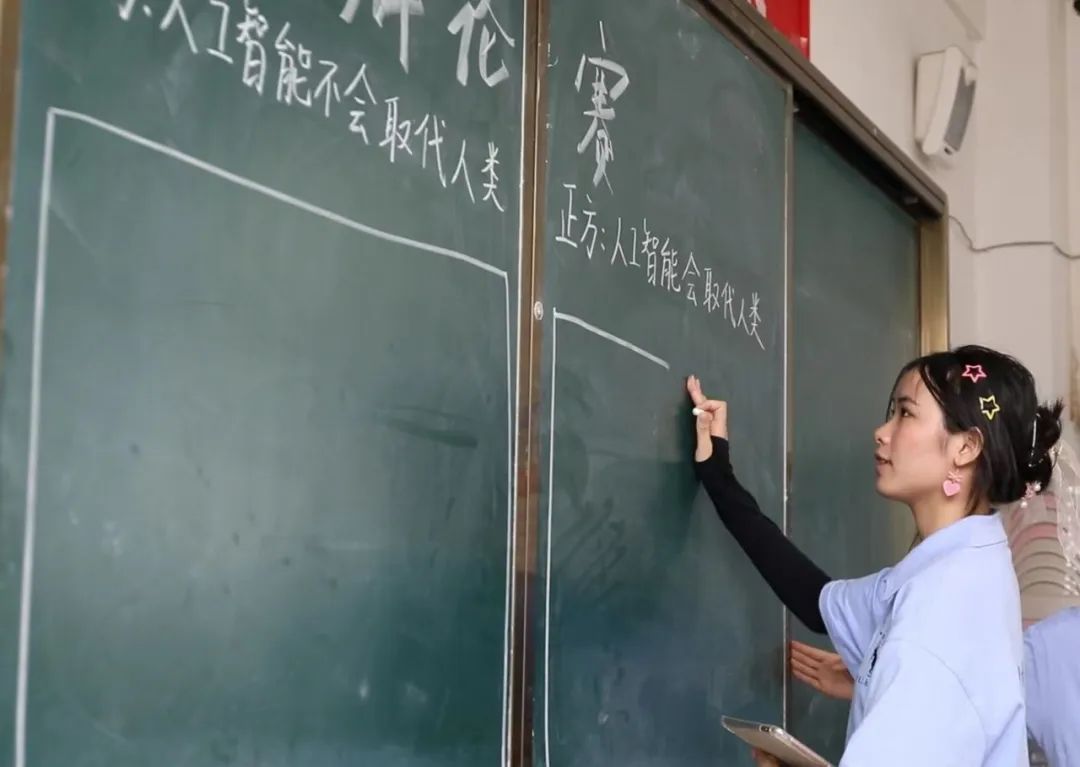 辩论赛
：人工智能不会取代人类
正方：人工智能会取代人类